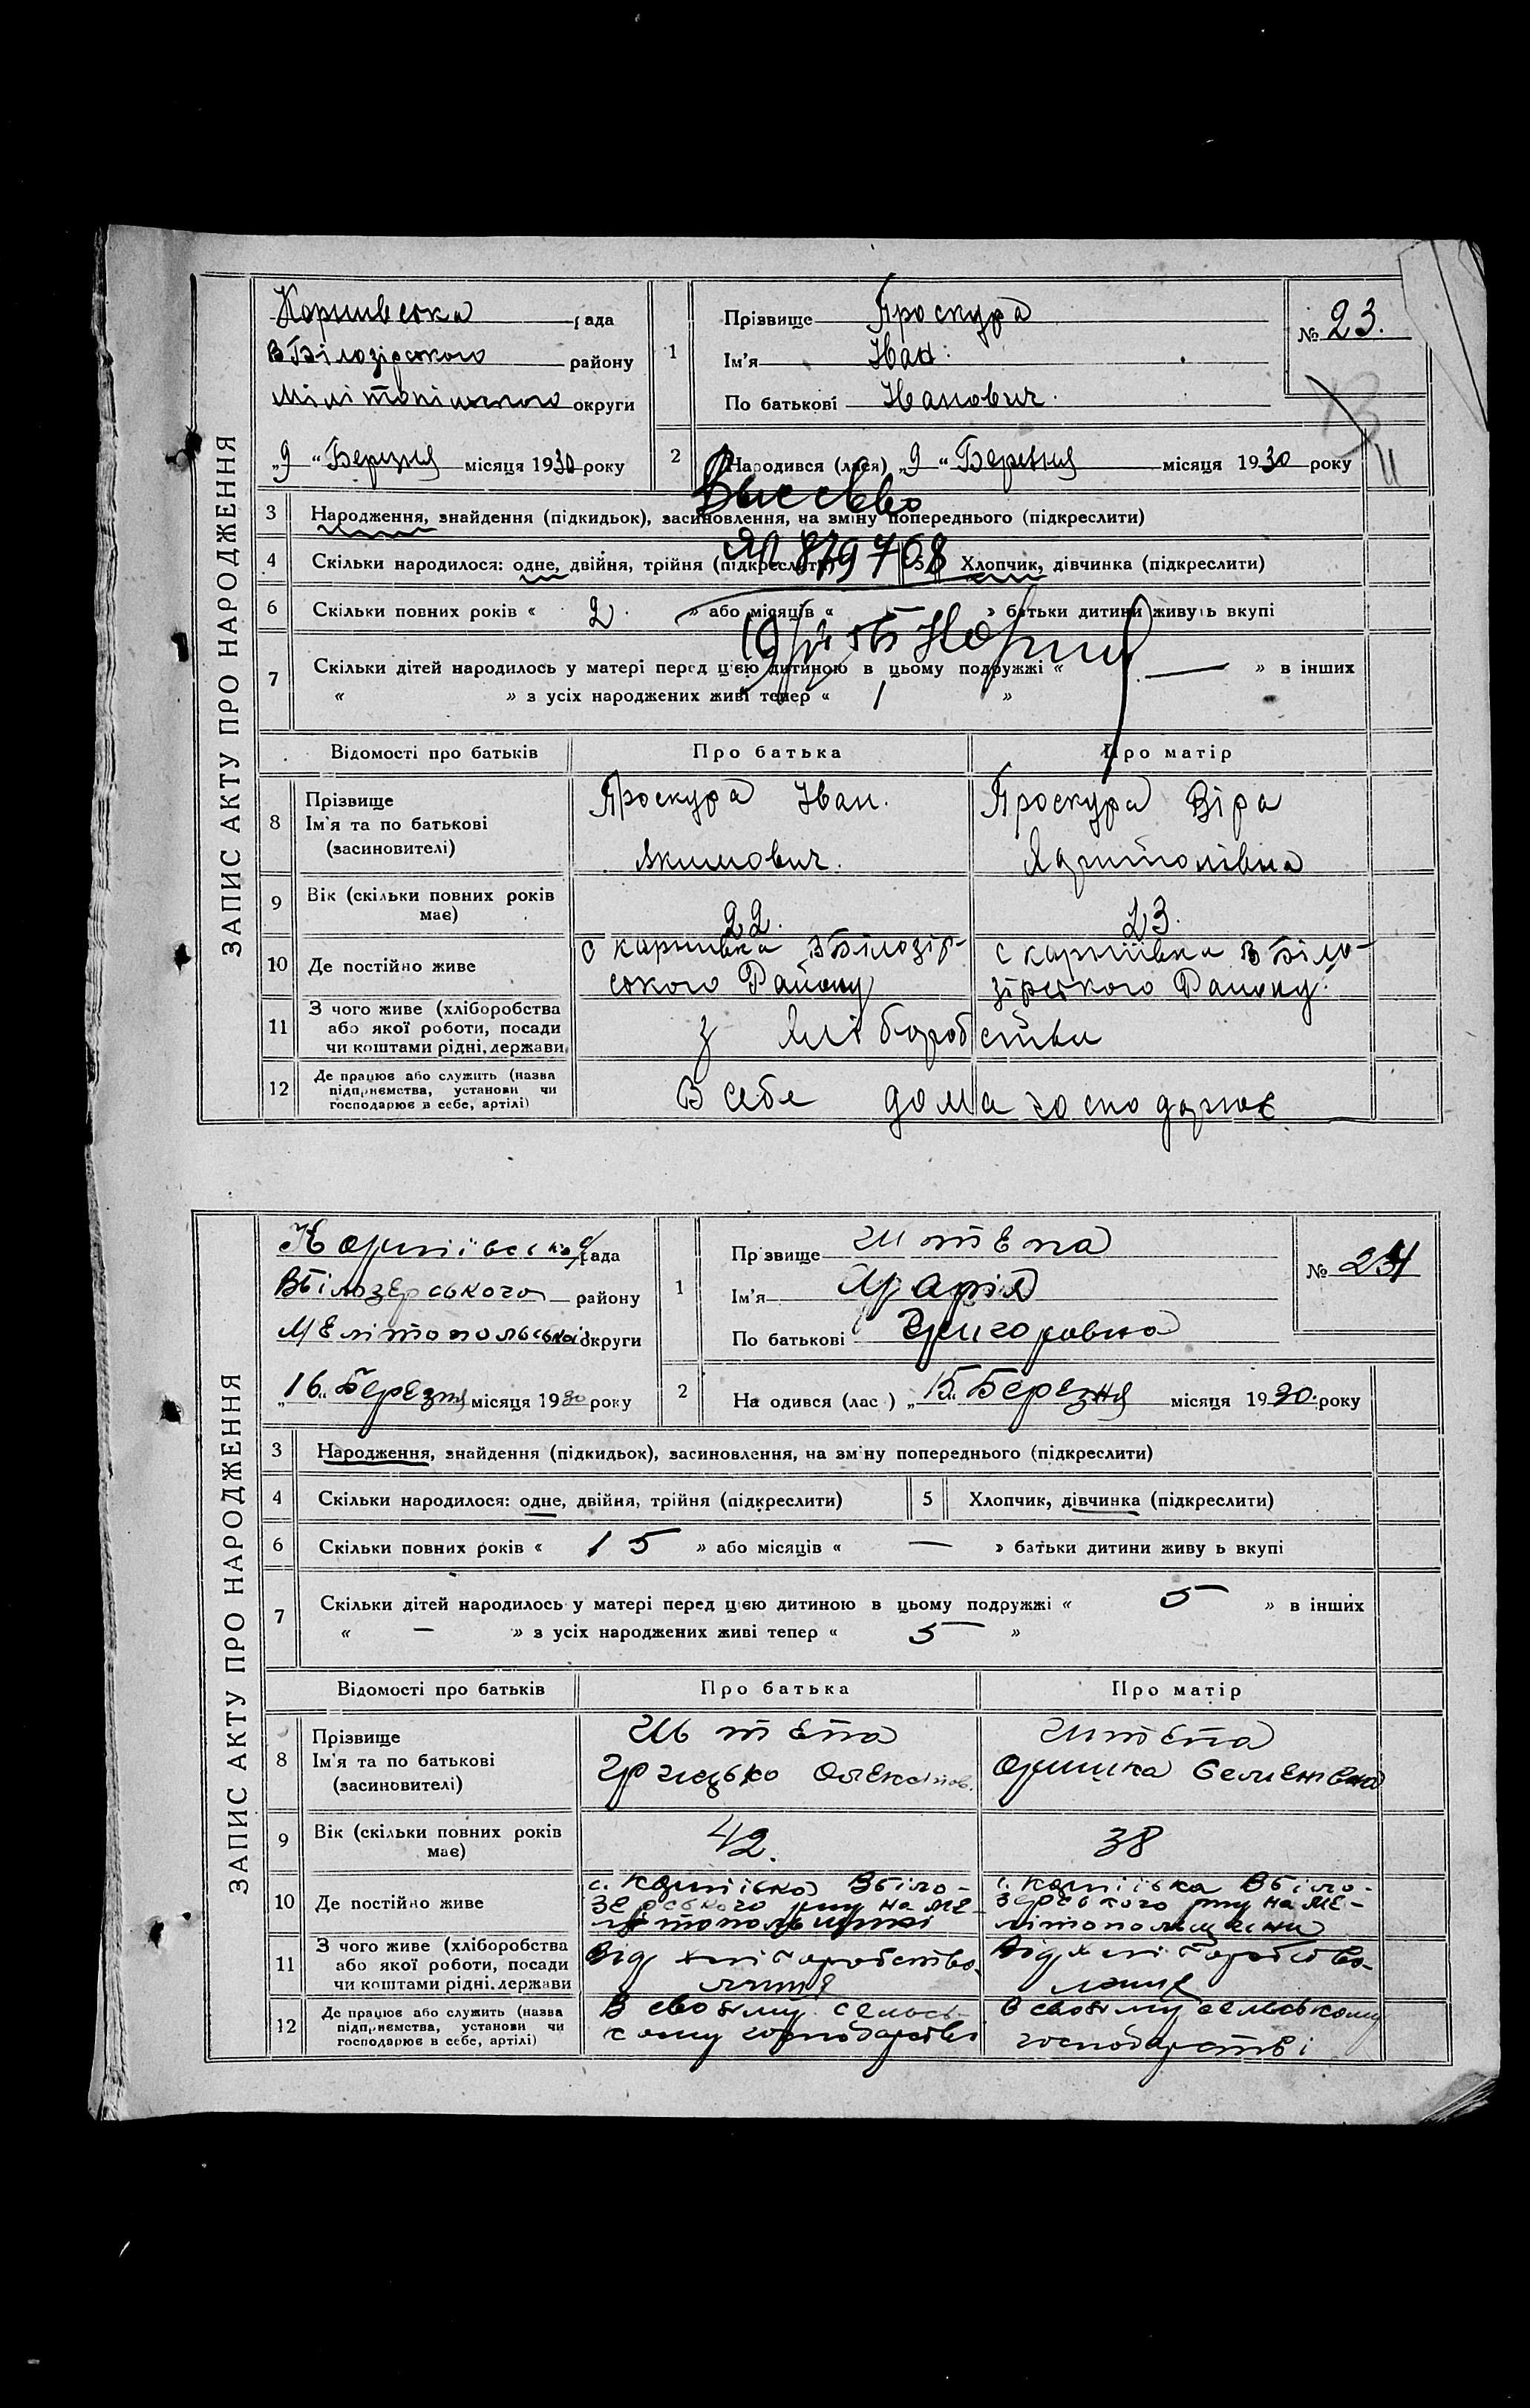 ЗАПИС АКТУ ПРО НАРОДЖЕННЯ
рада
вБілозірського району
округи
№ 23.
1 Прізвище Проскура
Ім'я Іван
По батькові Іванович
„9“ Березня місяця 1930 року
2 Народився (лася) „9“ Березня місяця 1930 року
11
3 Народження, знайдення (підкидьок), засиновлення, на зміну попереднього (підкреслити)
4 Скільки народилося: одне, двійня, трійня (підкреслити) 5 Хлопчик, дівчинка (підкреслити)
879768
6 Скільки повних років « 2. » або місяців « » батьки дитини живуть вкупі
7 Скільки дітей народилось у матері перед цією дитиною в цьому подружжі « — » в інших
« » з усіх народжених живі тепер « 1 »
Відомості про батьків Про батька Про матір
8 Прізвище Ім'я та по батькові (засиновителі)
Проскура Іван.
Якимович.
Проскура Віра
9 Вік (скільки повних років має) 22. 23.
10 Де постійно живе
с карпивка вБілозір-
ського Району
с карпиївка вБіло-
зірського Району.
11 З чого живе (хліборобства або якої роботи, посади чи коштами рідні, держави)
з хліборобства
12 Де працює або служить (назва підприємства, установи чи господарює в себе, артілі)
В себе дома господарює
ЗАПИС АКТУ ПРО НАРОДЖЕННЯ
рада
вБілозерського району
Мелітопольської округи
№ 24
1 Прізвище Штепа
Ім'я Марія
По батькові Григоровна
„16“ Березня місяця 1930 року
2 Народився (лас ) „15“ Березня місяця 1930 року
3 Народження, знайдення (підкидьох), засиновлення, на зміну попереднього (підкреслити)
4 Скільки народилося: одне, двійня, трійня (підкреслити) 5 Хлопчик, дівчинка (підкреслити)
6 Скільки повних років « 15 » або місяців « — » батьки дитини живу ь вкупі
7 Скільки дітей народилось у матері перед цією дитиною в цьому подружжі « 5 » в інших
« — » з усіх народжених живі тепер « 5 »
Відомості про батьків Про батька Про матір
8 Прізвище Ім'я та по батькові (засиновителі)
Штепа
Грицько
Штепа
Оришка Семенівна
9 Вік (скільки повних років має) 42. 38
10 Де постійно живе
с. Карпіівка Вбіло-
зерського рну на Ме-
с. Карпіівка Вбіло-
зерського рну на Ме-
літопольщини
11 З чого живе (хліборобства або якої роботи, посади чи коштами рідні, держави
Від хліборобство
Від хліборобство
12 Де працює або служить (назва підприємства, установи чи господарює в себе, артілі)
В своєму сельсь-
кому господарстві
В своєму сельському
господарстві